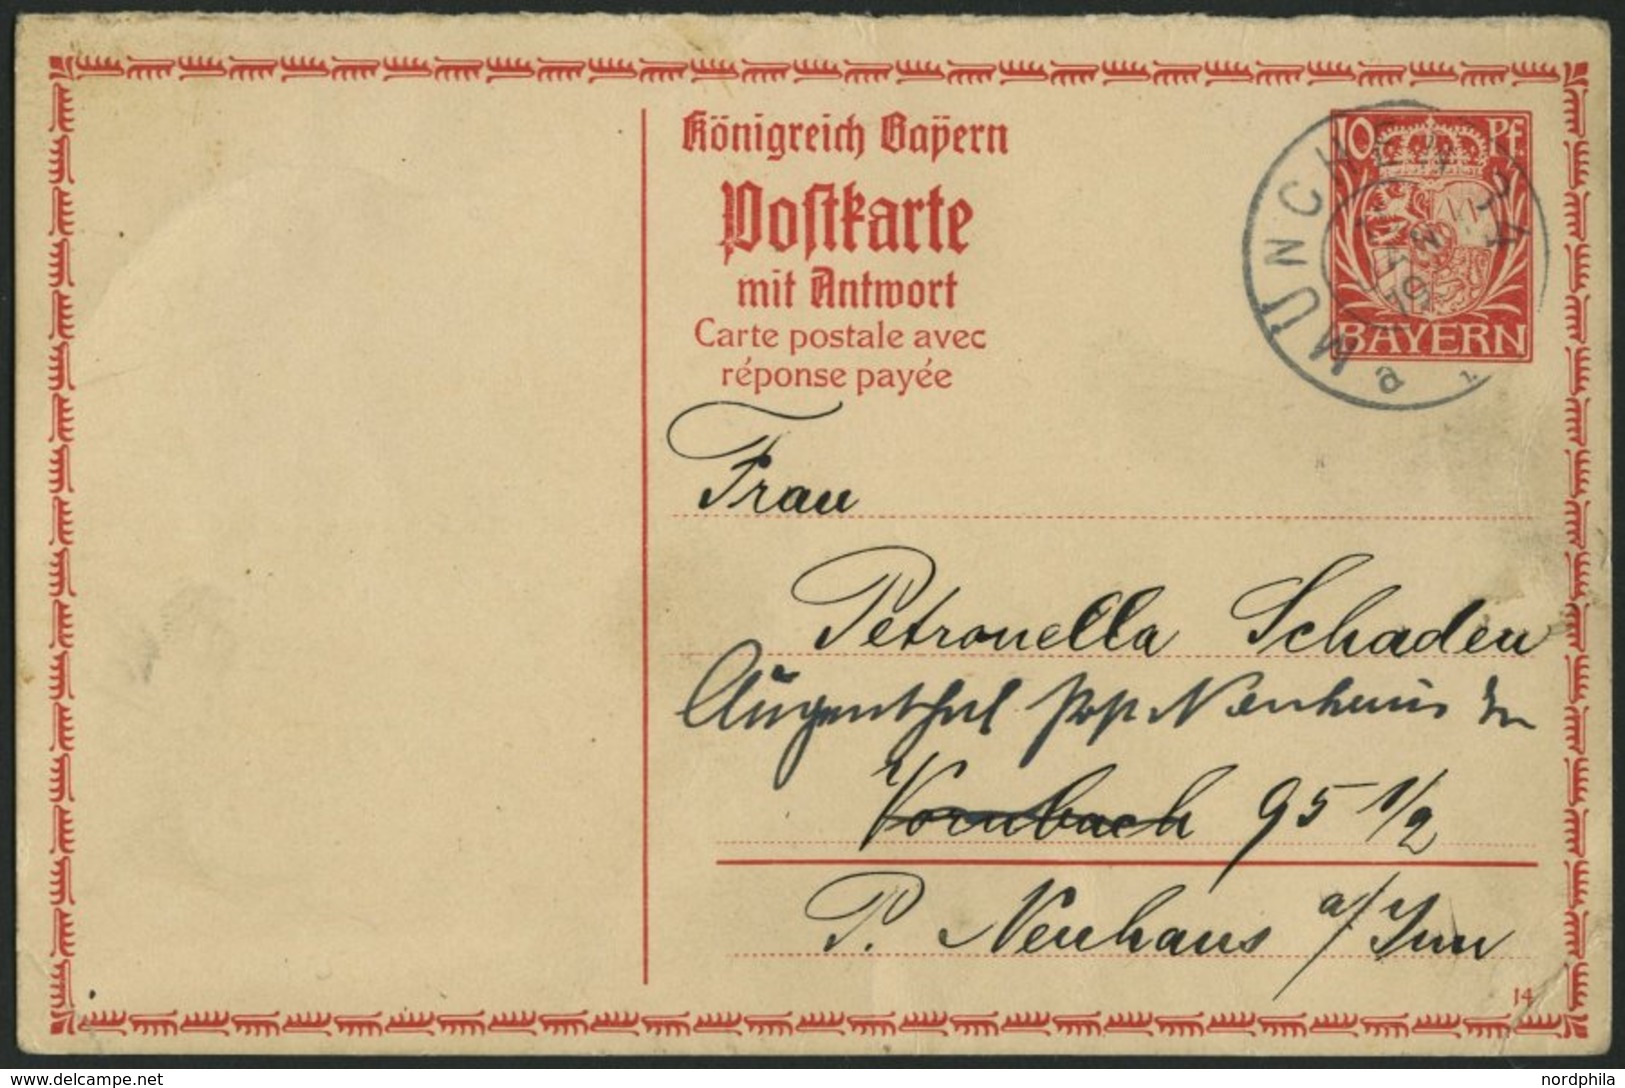 Königreich Bayern
Postkarte
mit Antwort
Carte postale avec
réponse payée
10 Pf
BAYERN
MÜNCHEN
a
Frau
Petronella Schaden
Augenthal Post Neuhaus Inn
Vornbach 95 1/2
P. Neuhaus a/Inn
14
delcampe.net
nordphila